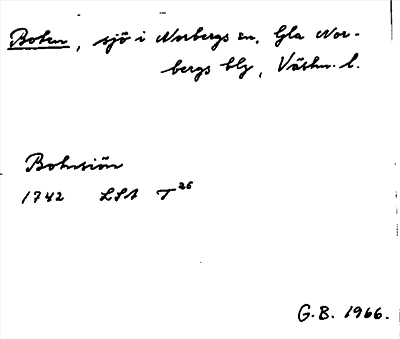 Boten, sjö i Norbergs sn, Gla Nor-
bergs blg, Västm. l.
Bohnsiön
1742 LSA T 26
G.B. 1966.